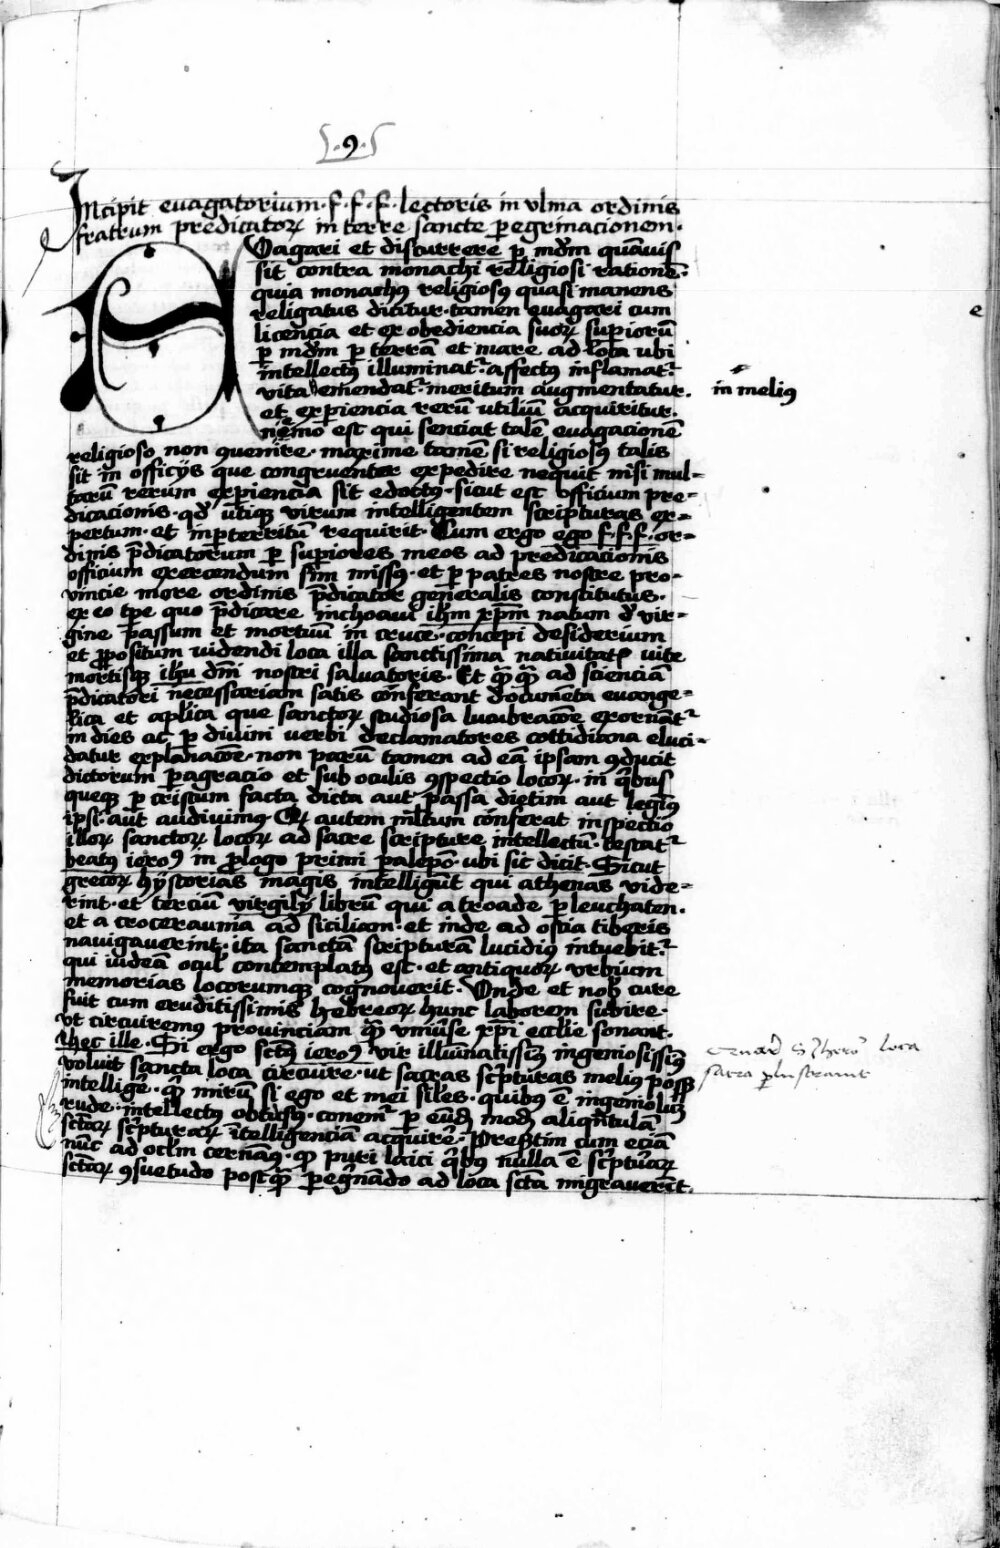 .9.
Incipit evagatorium · f · f · f · lectoris in vlma ordinis
fratrum predicatoꝝ in terre sancte ꝑegrinacionem ·
EVagari et discurrere ꝑ mūdm quāuis
sit contra monachi religiosi rationē:
quia monachꝯ religiosꝯ quasi manens
religatus dicitur · tamen euagari cum
licencia et ex obediencia suoꝝ suꝑiorū
ꝑ mūdm ꝑ terrā et mare ad loca ubi
intellectꝯ illuminat᷑ · affectꝯ inflamat᷑ ·
vita emendat᷑ · meritum augmentatur ·
et exꝑiencia rerū utiliū acquiritur ·
nemo est qui senciat talē euagacionē
religioso non ꝯuenire · maxime tamē si religiosꝯ talis
sit in officijs que congruenter expedire nequit nisi mul=
tarū rerum exꝑiencia sit edoctꝯ · sicut est officium pre=
dicacionis · qd̄ utiqꝫ virum intelligentem scripturas ex=
pertum · et inꝑterritū requirit · Cum ergo ego f · f · f · or=
dinis p̄dicatorum ꝑ suꝑiores meos ad predicacionis
officium exercendum sim missꝯ · et ꝑ patres nostre pro=
vincie more ordinis p̄dicator generalis constitutus ·
ex eo tꝑe quo p̄dicare inchoaui ihm̄ xp̄m natum d' vir=
gine passum et mortuū in cruce · concepi desiderium
et ꝓpositum videndi loca illa sanctissima natiuitatꝭ vite
mortisqꝫ ihū dm̄i nostri saluatoris · Et qꝫqꝫ ad scienciā
p̄dicatori necessariam satis conferant documēta euange=
lica et aplica que sanctoꝝ studiosa lucubracōe exornāt᷑
in dies ac ꝑ diuini verbi declamatores cottidiana eluci=
datur explanacōe · non parū tamen ad eā ipsam ꝯducit
dictorum ꝑagracio et sub oculis ꝯspectio locoꝝ · in qⁱbus
queqꝫ ꝑ cristum facta dicta aut passa dietim aut legimꝯ
ipsi · aut audiuimꝯ Qꝫ autem ml̄tum conferat inspectio
illoꝝ sanctoꝝ locoꝝ ad sacre scripture intellectū · testat᷑
beatꝯ ieroꝯ in ꝓlogo primi palepō · ubi sic dicit · Sicut
grecoꝝ hystorias magis intelligūt qui athenas vide=
rint · et terciū virgilij librū qui a troade ꝑ leuchaten ·
et a croceraunia ad siciliam · et inde ad ostia tiberis
nauigauerint · ita sanctā scripturā lucidiꝯ intuebit᷑
qui iudeā ocul' contemplatꝯ est · et antiquoꝝ vrbium
memorias locorumqꝫ cognouerit · Vnde et nob' cure
fuit cum eruditissimis hebreoꝝ hunc laborem subire ·
vt circuiremꝯ prouinciam quā vniuerse xp̄i ecclie sonant ·
hec ille · Si ergo sctꝯ ieroꝯ vir illuminatissimꝯ ingeniosissimꝯ
voluit sancta loca circuire · ut sacras scripturas meliꝯ posset
intellige᷑ · quid mirū si ego et mei siles · quibus ē ingeniolum
rude · intellectꝯ obtusꝯ · conemꝰ ꝑ eūdꝫ modū aliqn̄tulā
sctaꝝ scripturaꝝ intelligenciā acquirere · Presertim cum eciā
nūc ad oclm cernamꝯ · qꝫ puri laici qⁱbꝯ nulla ē scripturaꝝ
sctaꝝ ꝯsuetudo postqꝫ ꝑegrinādo ad loca scta migrauerīt ·
in melius
S Ihero' loca
sacra ꝑlustrauit